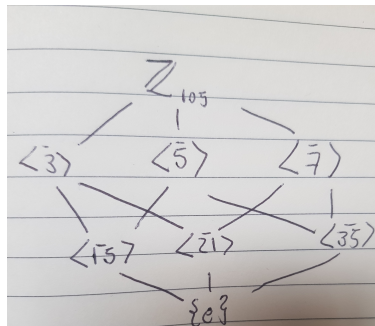 ℤ₁₀₅
<3̄> <5̄> <7̄>
<1̄5> <2̄1> <3̄5>
{e}